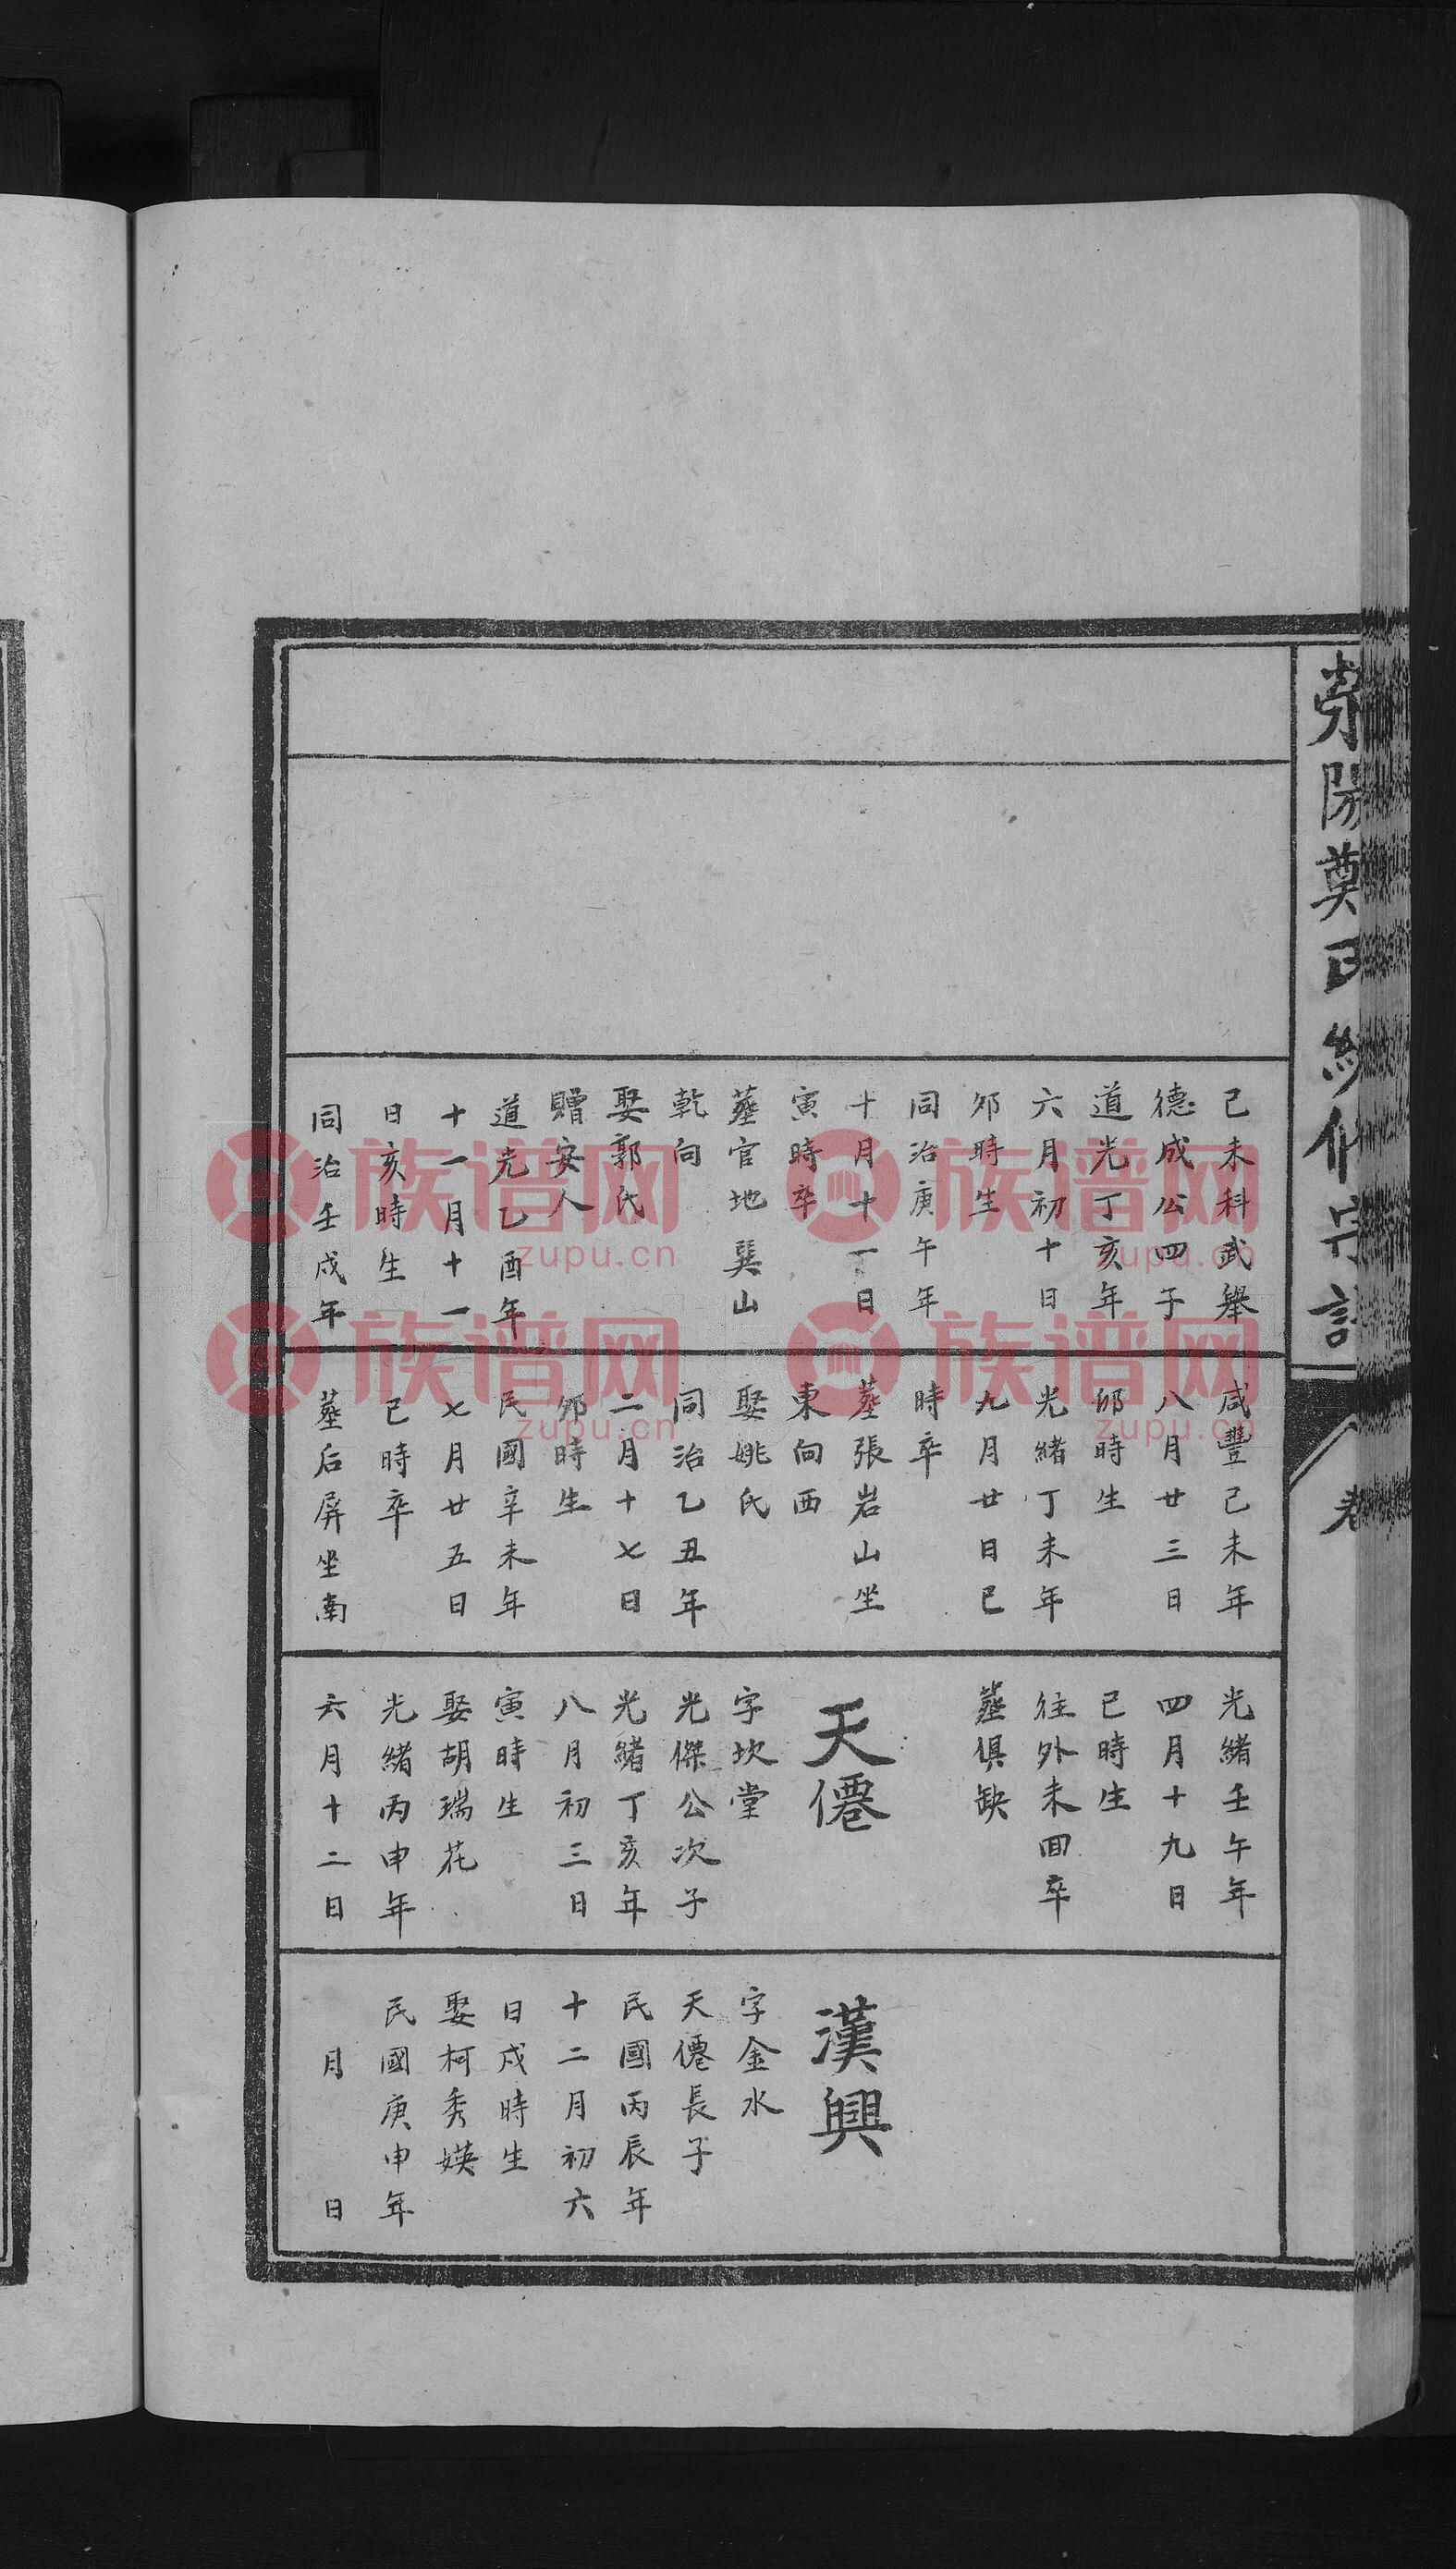 滎陽鄭氏統修宗譜
卷
己未科武舉
德成公四子
道光丁亥年
六月初十日
夘時生
同治庚午年
十月十一日
寅時卒
塟官地巽山
乾向
娶郭氏
贈安人
道光乙酉年
十一月十一
日亥時生
同治壬戌年
咸豐己未年
八月廿三日
卯時生
光緒丁未年
九月廿日巳
時卒
塟張岩山坐
東向西
娶姚氏
同治乙丑年
二月十七日
夘時生
民國辛未年
七月廿五日
巳時卒
塟后屏坐南
光緒壬午年
四月十九日
巳時生
往外未回卒
塟俱缺
天僊
字坎堂
光傑公次子
光緒丁亥年
八月初三日
寅時生
娶胡瑞花
光緒丙申年
六月十二日
漢興
字金水
天僊長子
民國丙辰年
十二月初六
日戌時生
娶柯秀媖
民國庚申年
月 日
族谱网
zupu.cn
族谱网
zupu.cn
族谱网
zupu.cn
族谱网
zupu.cn